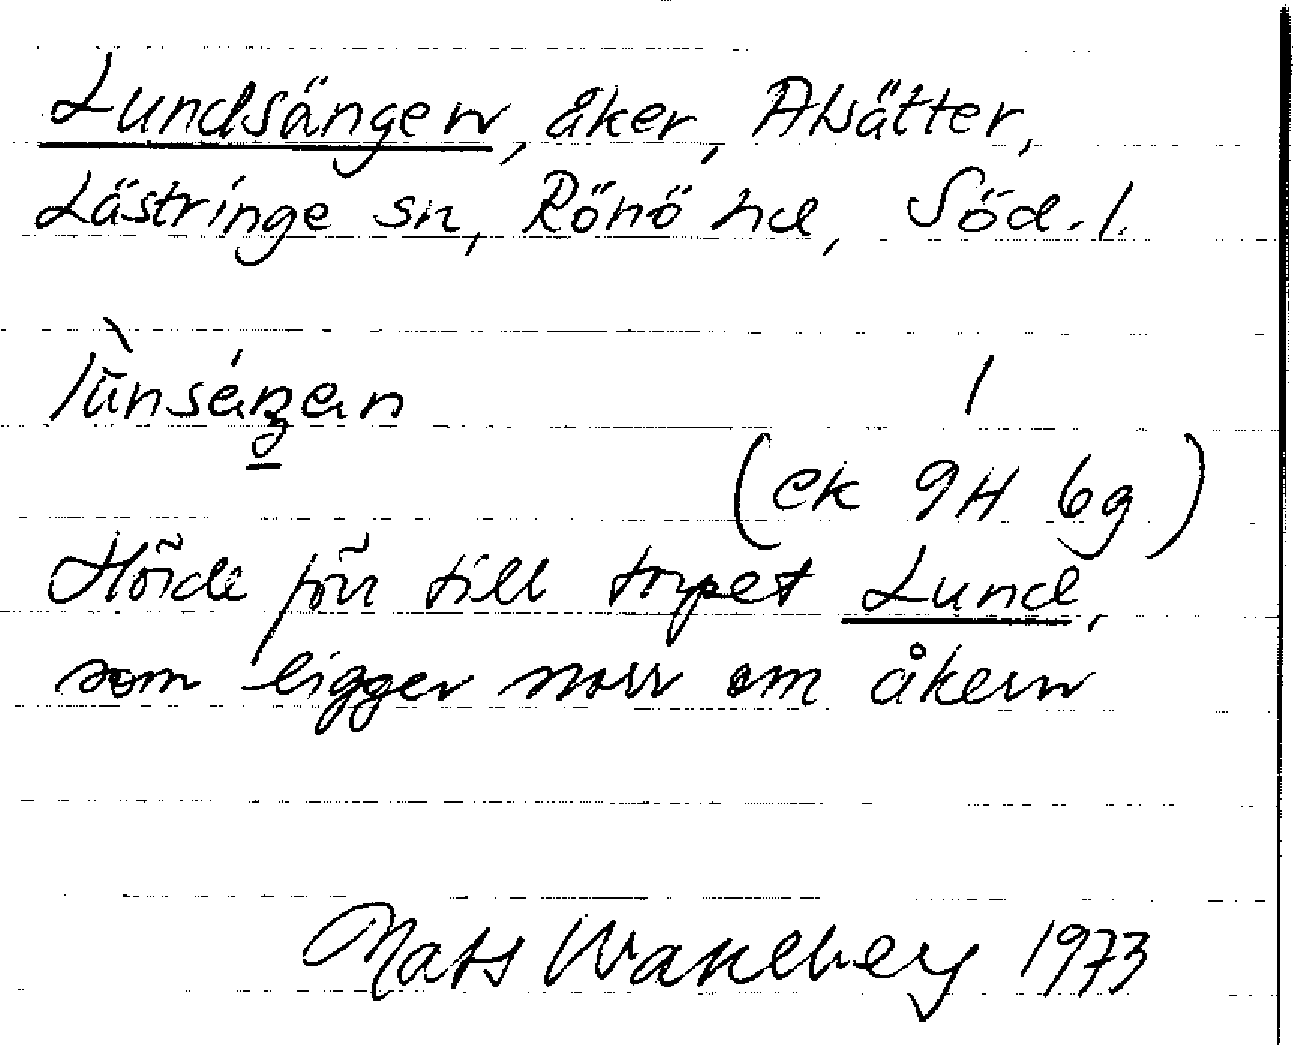 Lundsängen, åker, Absätter,
Lästringe sn, Rönö hd, Söd. l.
1
(ek 9H 6g)
Hörde förr till torpet Lund,
som ligger norr om åkern
Mats Wahlberg 1973